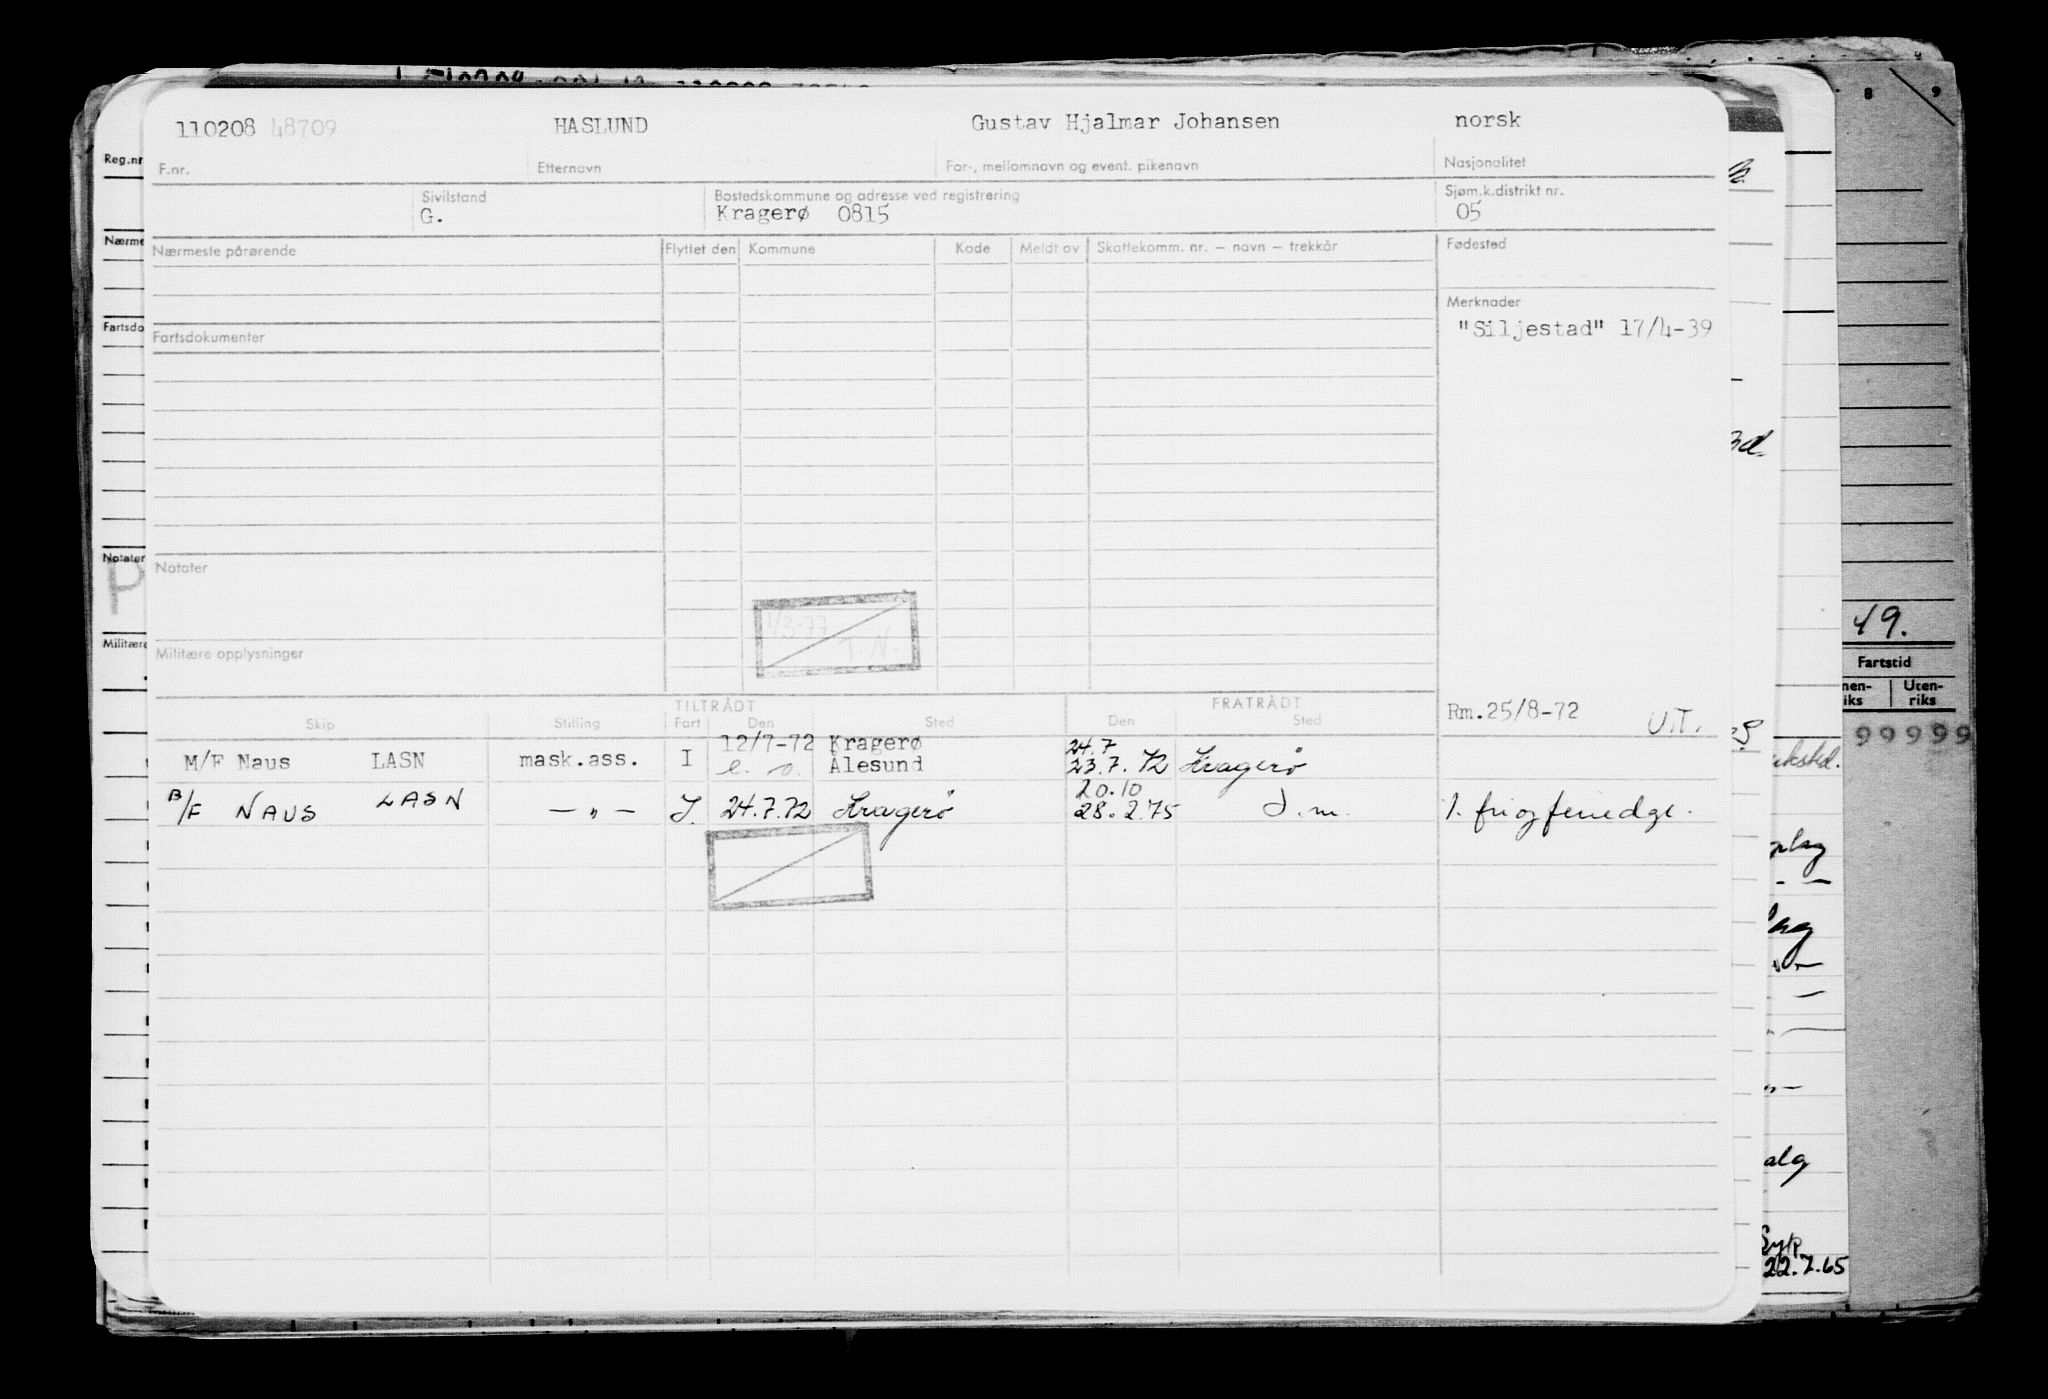 110208 48709 HASLUND Gustav Hjalmar Johansen norsk
F.nr. Etternavn For-, mellomnavn og event. pikenavn Nasjonalitet
Sivilstand Bostedskommune og adresse ved registrering Sjøm.k.distrikt nr.
G. Kragerø 0815 05
Nærmeste pårørende Flyttet den Kommune Kode Meldt av Skattekomm. nr. – navn – trekkår Fødested
Merknader
"Siljestad" 17/4-39
Fartsdokumenter
Notater
1/3-77
T.N.
Militære opplysninger
TILTRÅDT FRATRÅDT
Skip Stilling Fart Den Sted Den Sted
Rm.25/8-72 U.T.
12/7-72 Kragerø 24.7
M/F Naus LASN mask.ass. I e. o. Ålesund 23.7.72 Kragerø
20.10
B/F NAUS LASN — " — I. 24.7.72 Kragerø 28.2.75 d.m. 1. fri og feriedge.
Reg.nr
Nærme
Fartsdo
Notater
P
Militære
8 9
49.
Fartstid
nen- Uten-
iks riks
99999
alg
Syk
22.7.65